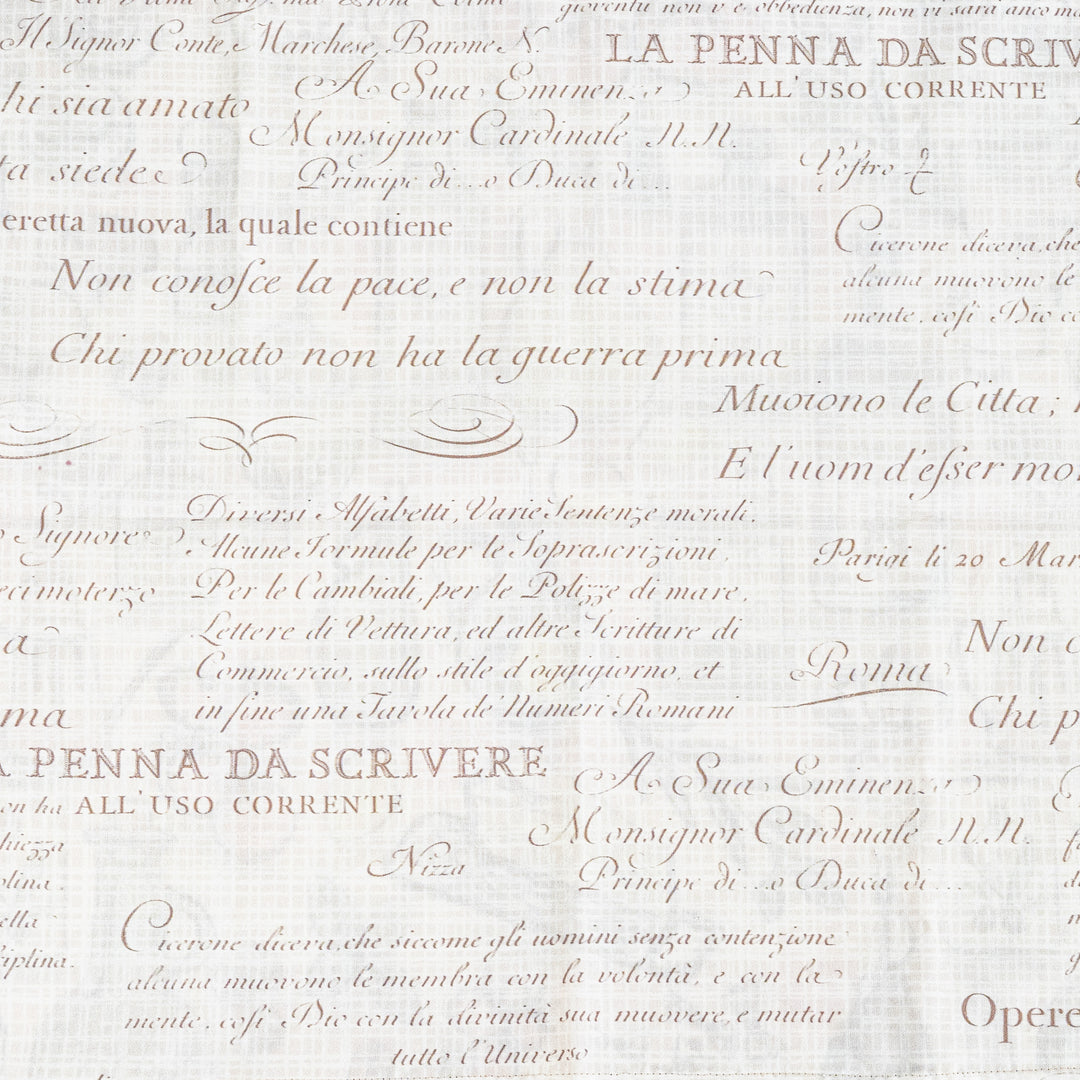 Il Signor Conte, Marchese, Barone N.
gioventù non v'è obbedienza, non vi sarà anco
LA PENNA DA SCRIV
ALL'USO CORRENTE
hi sia amato
A Sua Eminenza
Monsignor Cardinale N.N.
Principe di...o Duca di...
ta siede
Vostro
eretta nuova, la quale contiene
Cicerone diceva, che
alcuna muovono le
mente, cosi Dio co
Non conosce la pace, e non la stima
Chi provato non ha la guerra prima
Muoiono le Citta;
E l'uom d'esser mo
Signore
ecimoterzo
Diversi Alfabetti, Varie Sentenze morali,
Alcune Formule per le Soprascrizioni,
Per le Cambiali, per le Polizze di mare,
Lettere di Vettura, ed altre Scritture di
Commercio, sullo stile d'oggigiorno, et
in fine una Tavola de Numeri Romani
Parigi li 20 Mar
a
ma
Roma
Non c
Chi p
A PENNA DA SCRIVERE
on ha ALL'USO CORRENTE
hiezza
plina.
ella
iplina.
Nizza
A Sua Eminenza
Monsignor Cardinale N.N.
Principe di...o Duca di...
Cicerone diceva, che siccome gli uomini senza contenzione
alcuna muovono le membra con la volontà, e con la
mente, cosi Dio con la divinità sua muovere, e mutar
tutto l'Universo
Opere